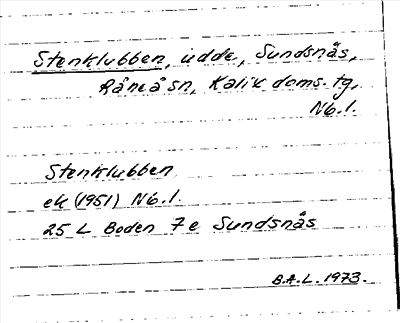 Stenklubben, udde, Sundsnäs,
Råneå sn, Kalix doms. tg,
Nb. l.
Stenklubben
ek (1951) Nb. l.
25 L Boden 7 e Sundsnäs
B.A.L. 1973.